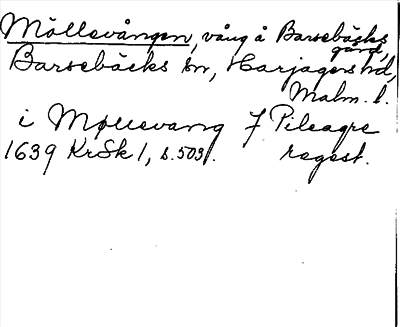 Möllevången, vång å Barsebäcks
gård,
Barsebäcks sn, Harjagers hd,
Malm. l.
i Møllevang 7 Pileagre
1639 KrSk 1, s. 503. regest.